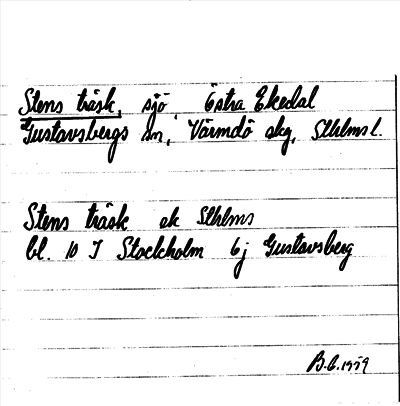 Stens träsk, sjö Östra Ekedal
Gustavsbergs sn, Värmdö skg, Sthlms l.
Stens träsk ek Sthlms
bl. 10 I Stockholm 6j Gustavsberg
B.G. 1979